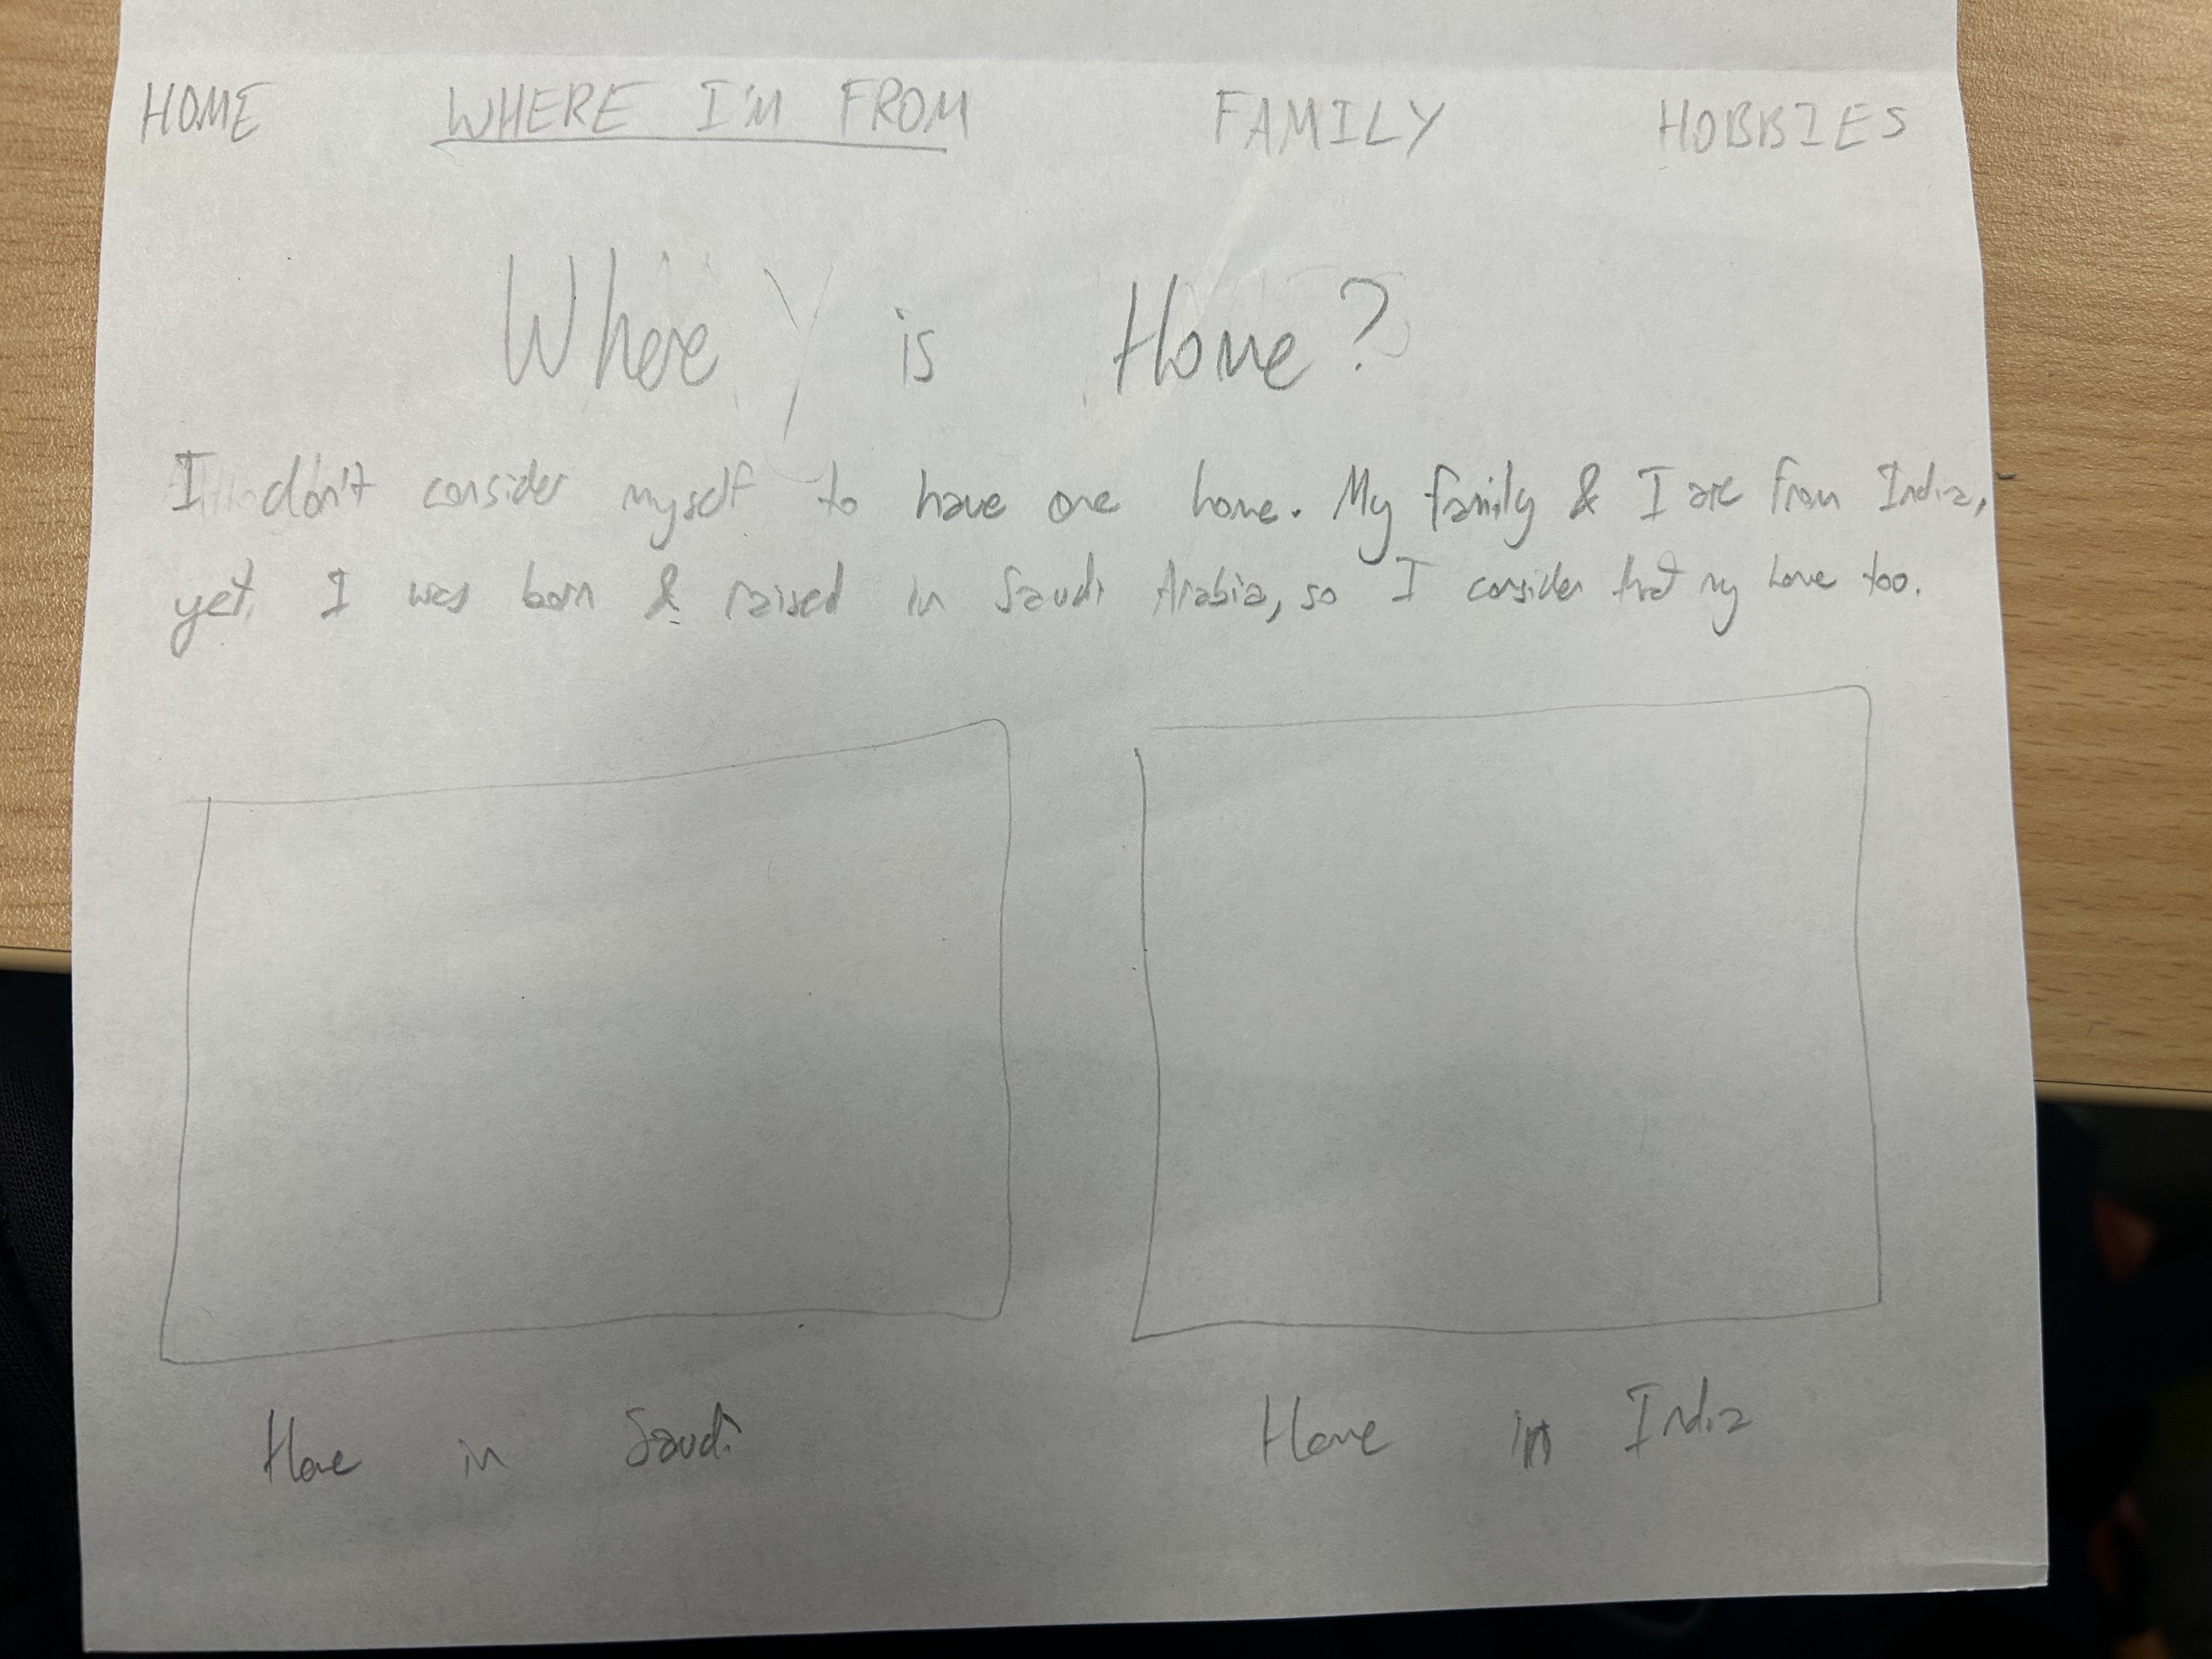 HOME WHERE I'M FROM FAMILY HOBBIES
Where is Home?
I don't consider myself to have one home. My family & I are from India,
yet I was born & raised in Saudi Arabia, so I consider that my home too.
Home in Saudi Home in India